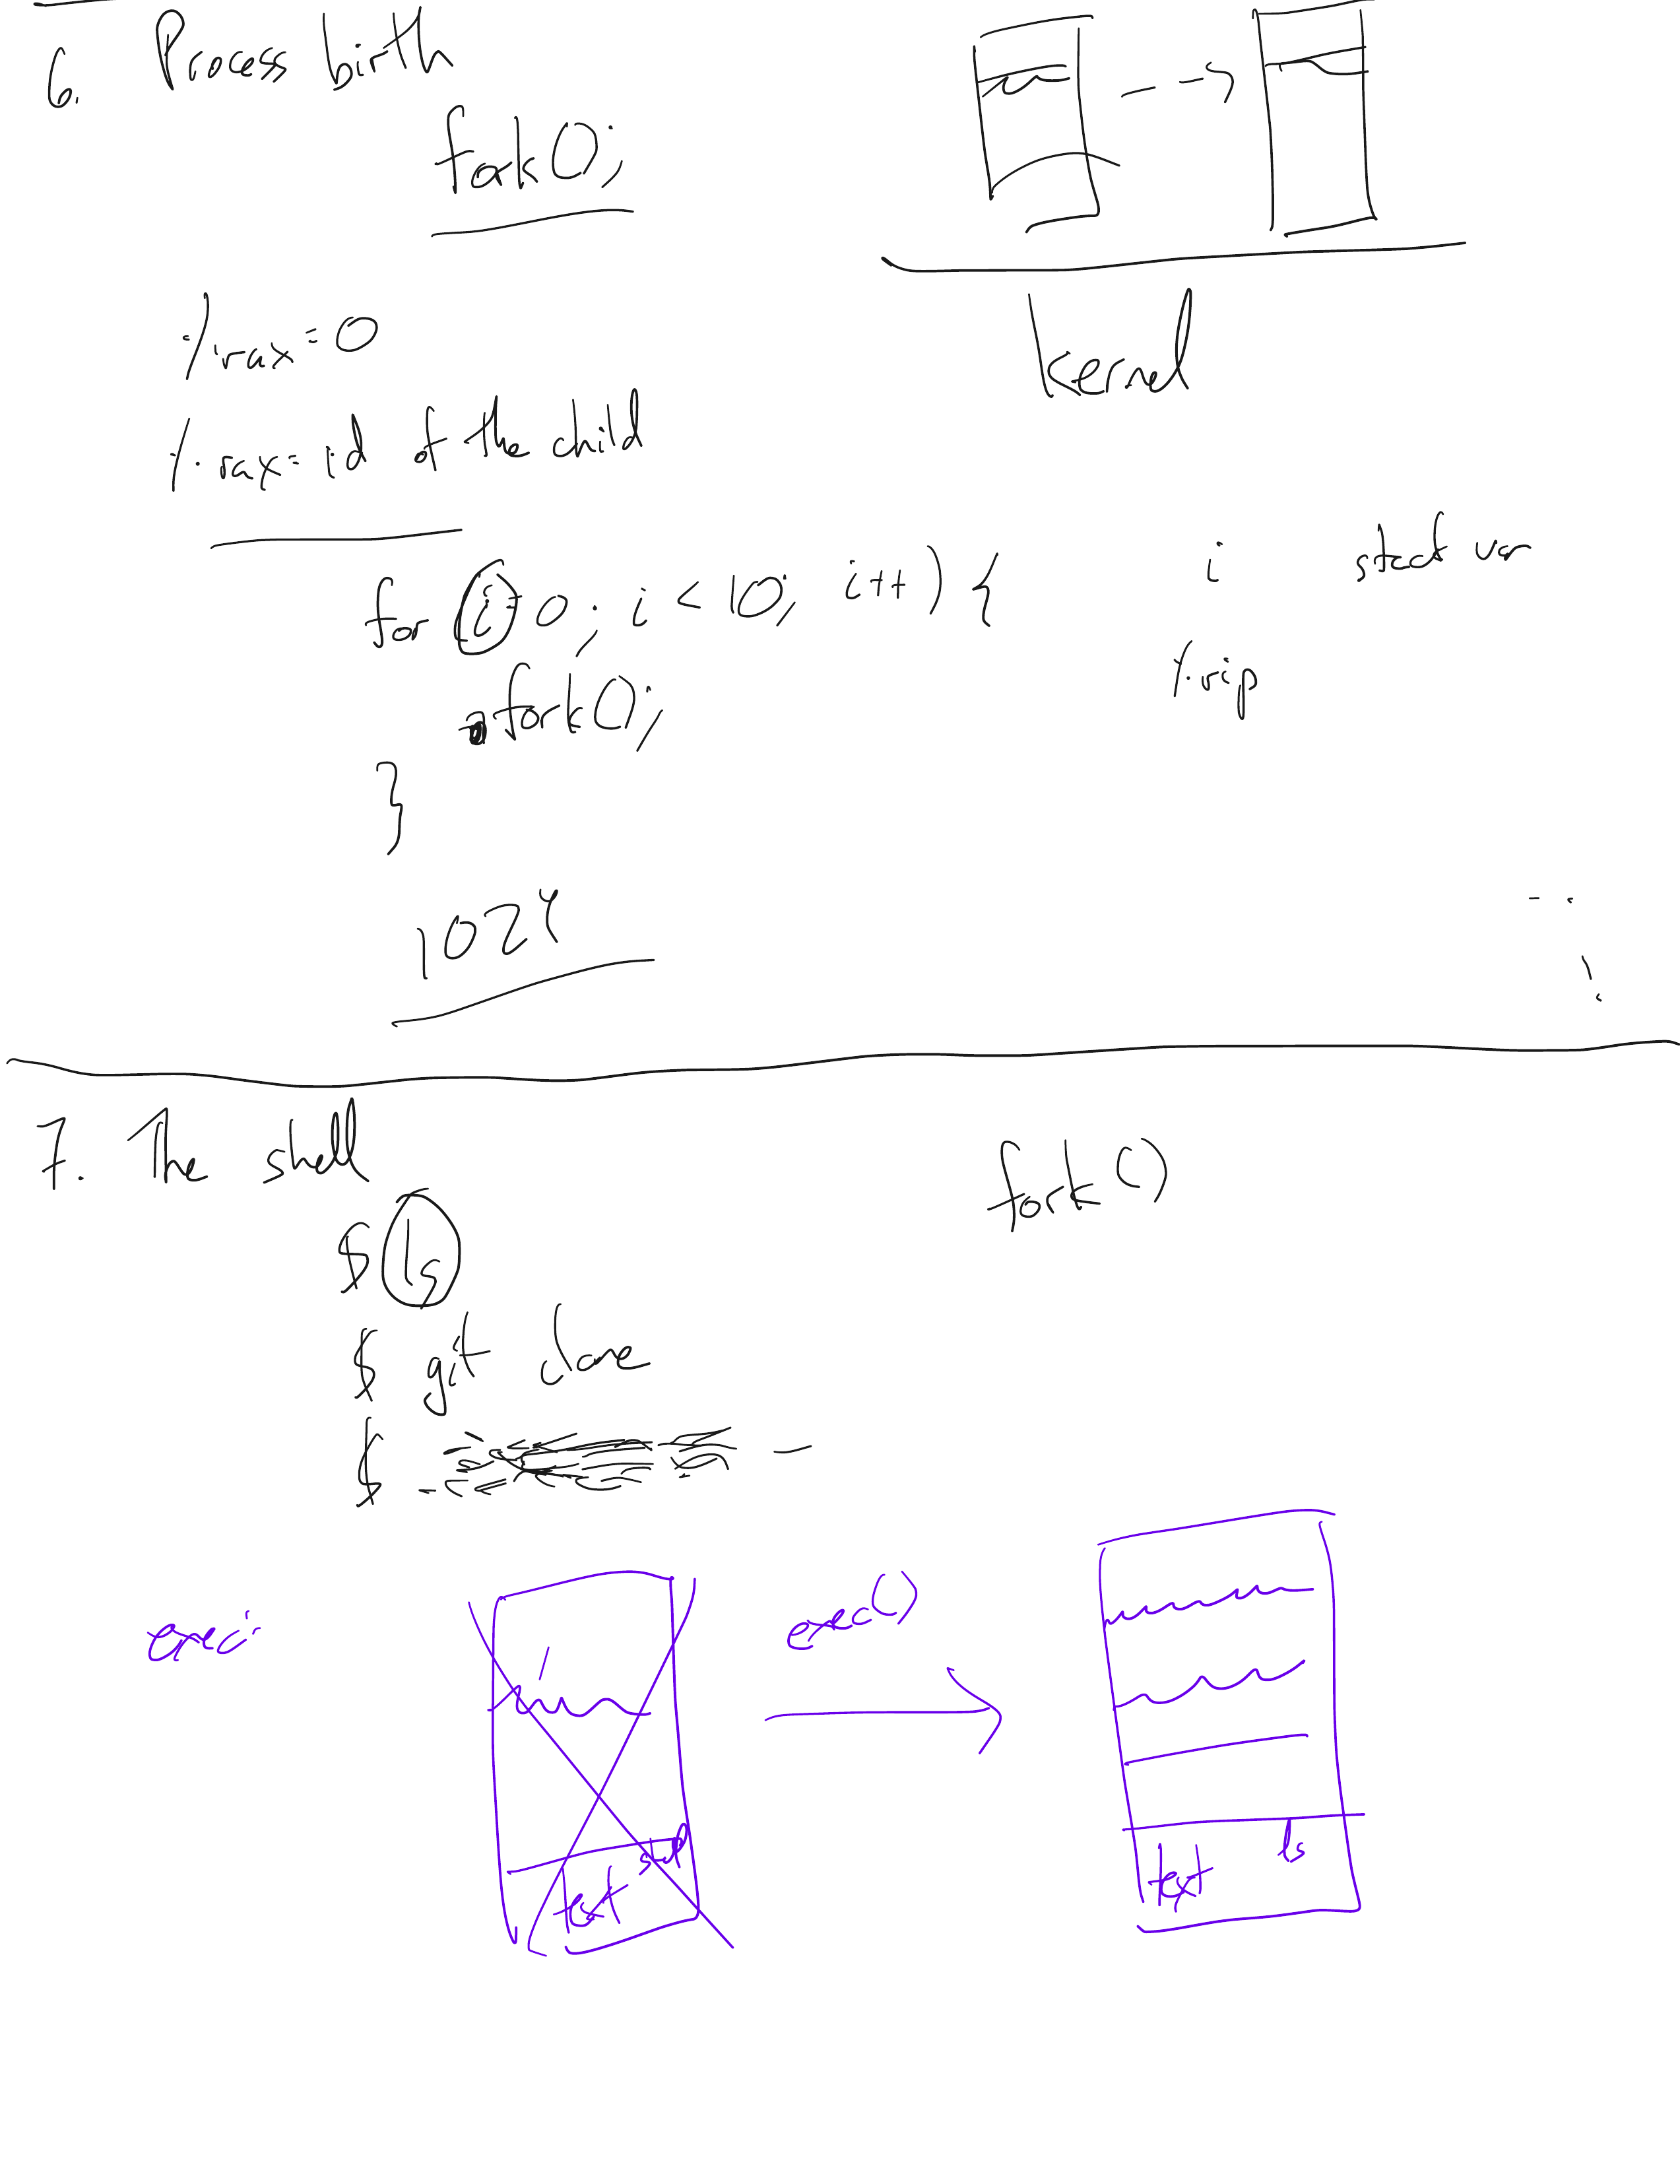 6. Process birth
fork();
kernel
%rax=0
%rax=id of the child
for (i=0; i<10; i++) {
i stack var
fork();
%rip
}
1024
7. The shell
fork()
$ ls
$ git clone
$
exec:
exec()
text shell
text ls